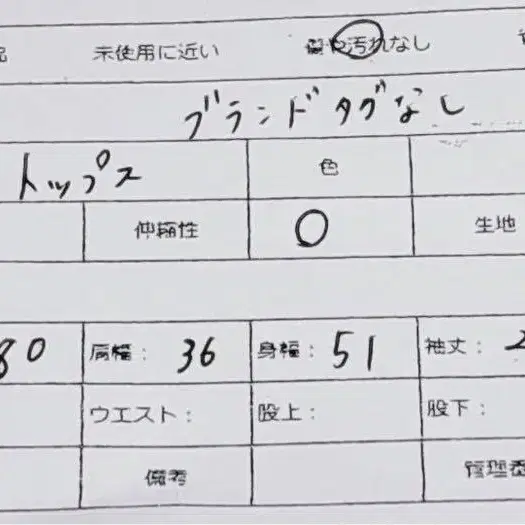 未使用に近い 傷や汚れなし
ブランドタグなし
トップス 色
伸縮性 ○ 生地
80 肩幅： 36 身幅： 51 袖丈： 2
ウエスト： 股上： 股下：
備考 管理番